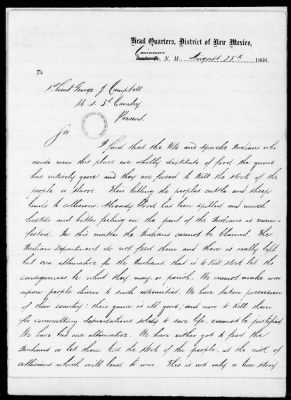 Head Quarters, District of New Mexico,
Cimarron
N. M., August 25th 1866.
To
1st Lieut George J. Campbell
U. S. 3d Cavalry
Present.
Sir
I find that the Ute and Apache Indians who
reside near this place are wholly destitute of food the game
has entirely gone and they are forced to kill the stock of the
people or starve. Their killing the peoples cattle and sheep
leads to collisions. Already blood has been spilled and much
hostile and bitter feeling on the part of the Indians is mani-
fested. In this matter the Indians cannot be blamed. The
Indian Department do not feed them and there is really left
but one alternative for the Indians that is to kill stock let the
consequences be what they may, or perish. We cannot make war
upon people driven to such extremities. We have taken possession
of their country; their game is all gone, and now to kill them
for committing depredations solely to save life, cannot be justified.
We have but one alternative. We have either got to feed the
Indians or let them kill the stock of the people, at the risk of
collisions which will lead to war. This is not only a true story